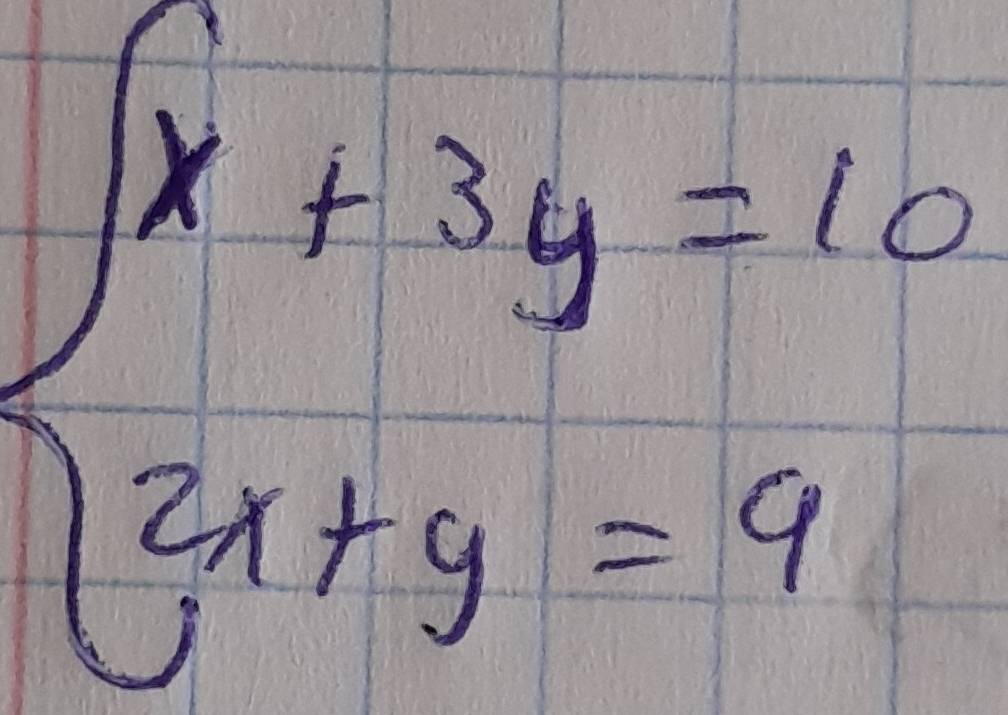 x + 3y = 10
2x + y = 9